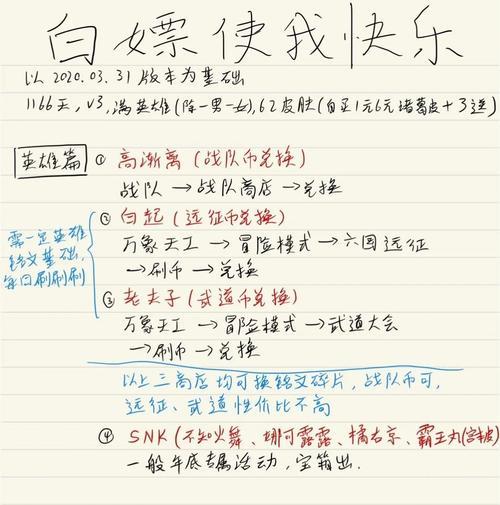 白嫖使我快乐
以 2020.03.31 版本为基础
1166天, V3, 满英雄(除一男一女), 62皮肤(自买1元6元诸葛皮+3送)
英雄篇
① 高渐离 (战队币兑换)
战队 → 战队商店 → 兑换
② 白起 (远征币兑换)
万象天工 → 冒险模式 → 六国远征
→刷币 → 兑换
需一定英雄
铭文基础,
每日刷刷刷
③ 老夫子 (武道币兑换)
万象天工 → 冒险模式 → 武道大会
→刷币 → 兑换
以上三商店均可换铭文碎片, 战队币可,
远征、武道性价比不高
④ SNK (不知火舞、娜可露露、橘右京、霸王丸(含皮)
一般年底专属活动, 宝箱出.